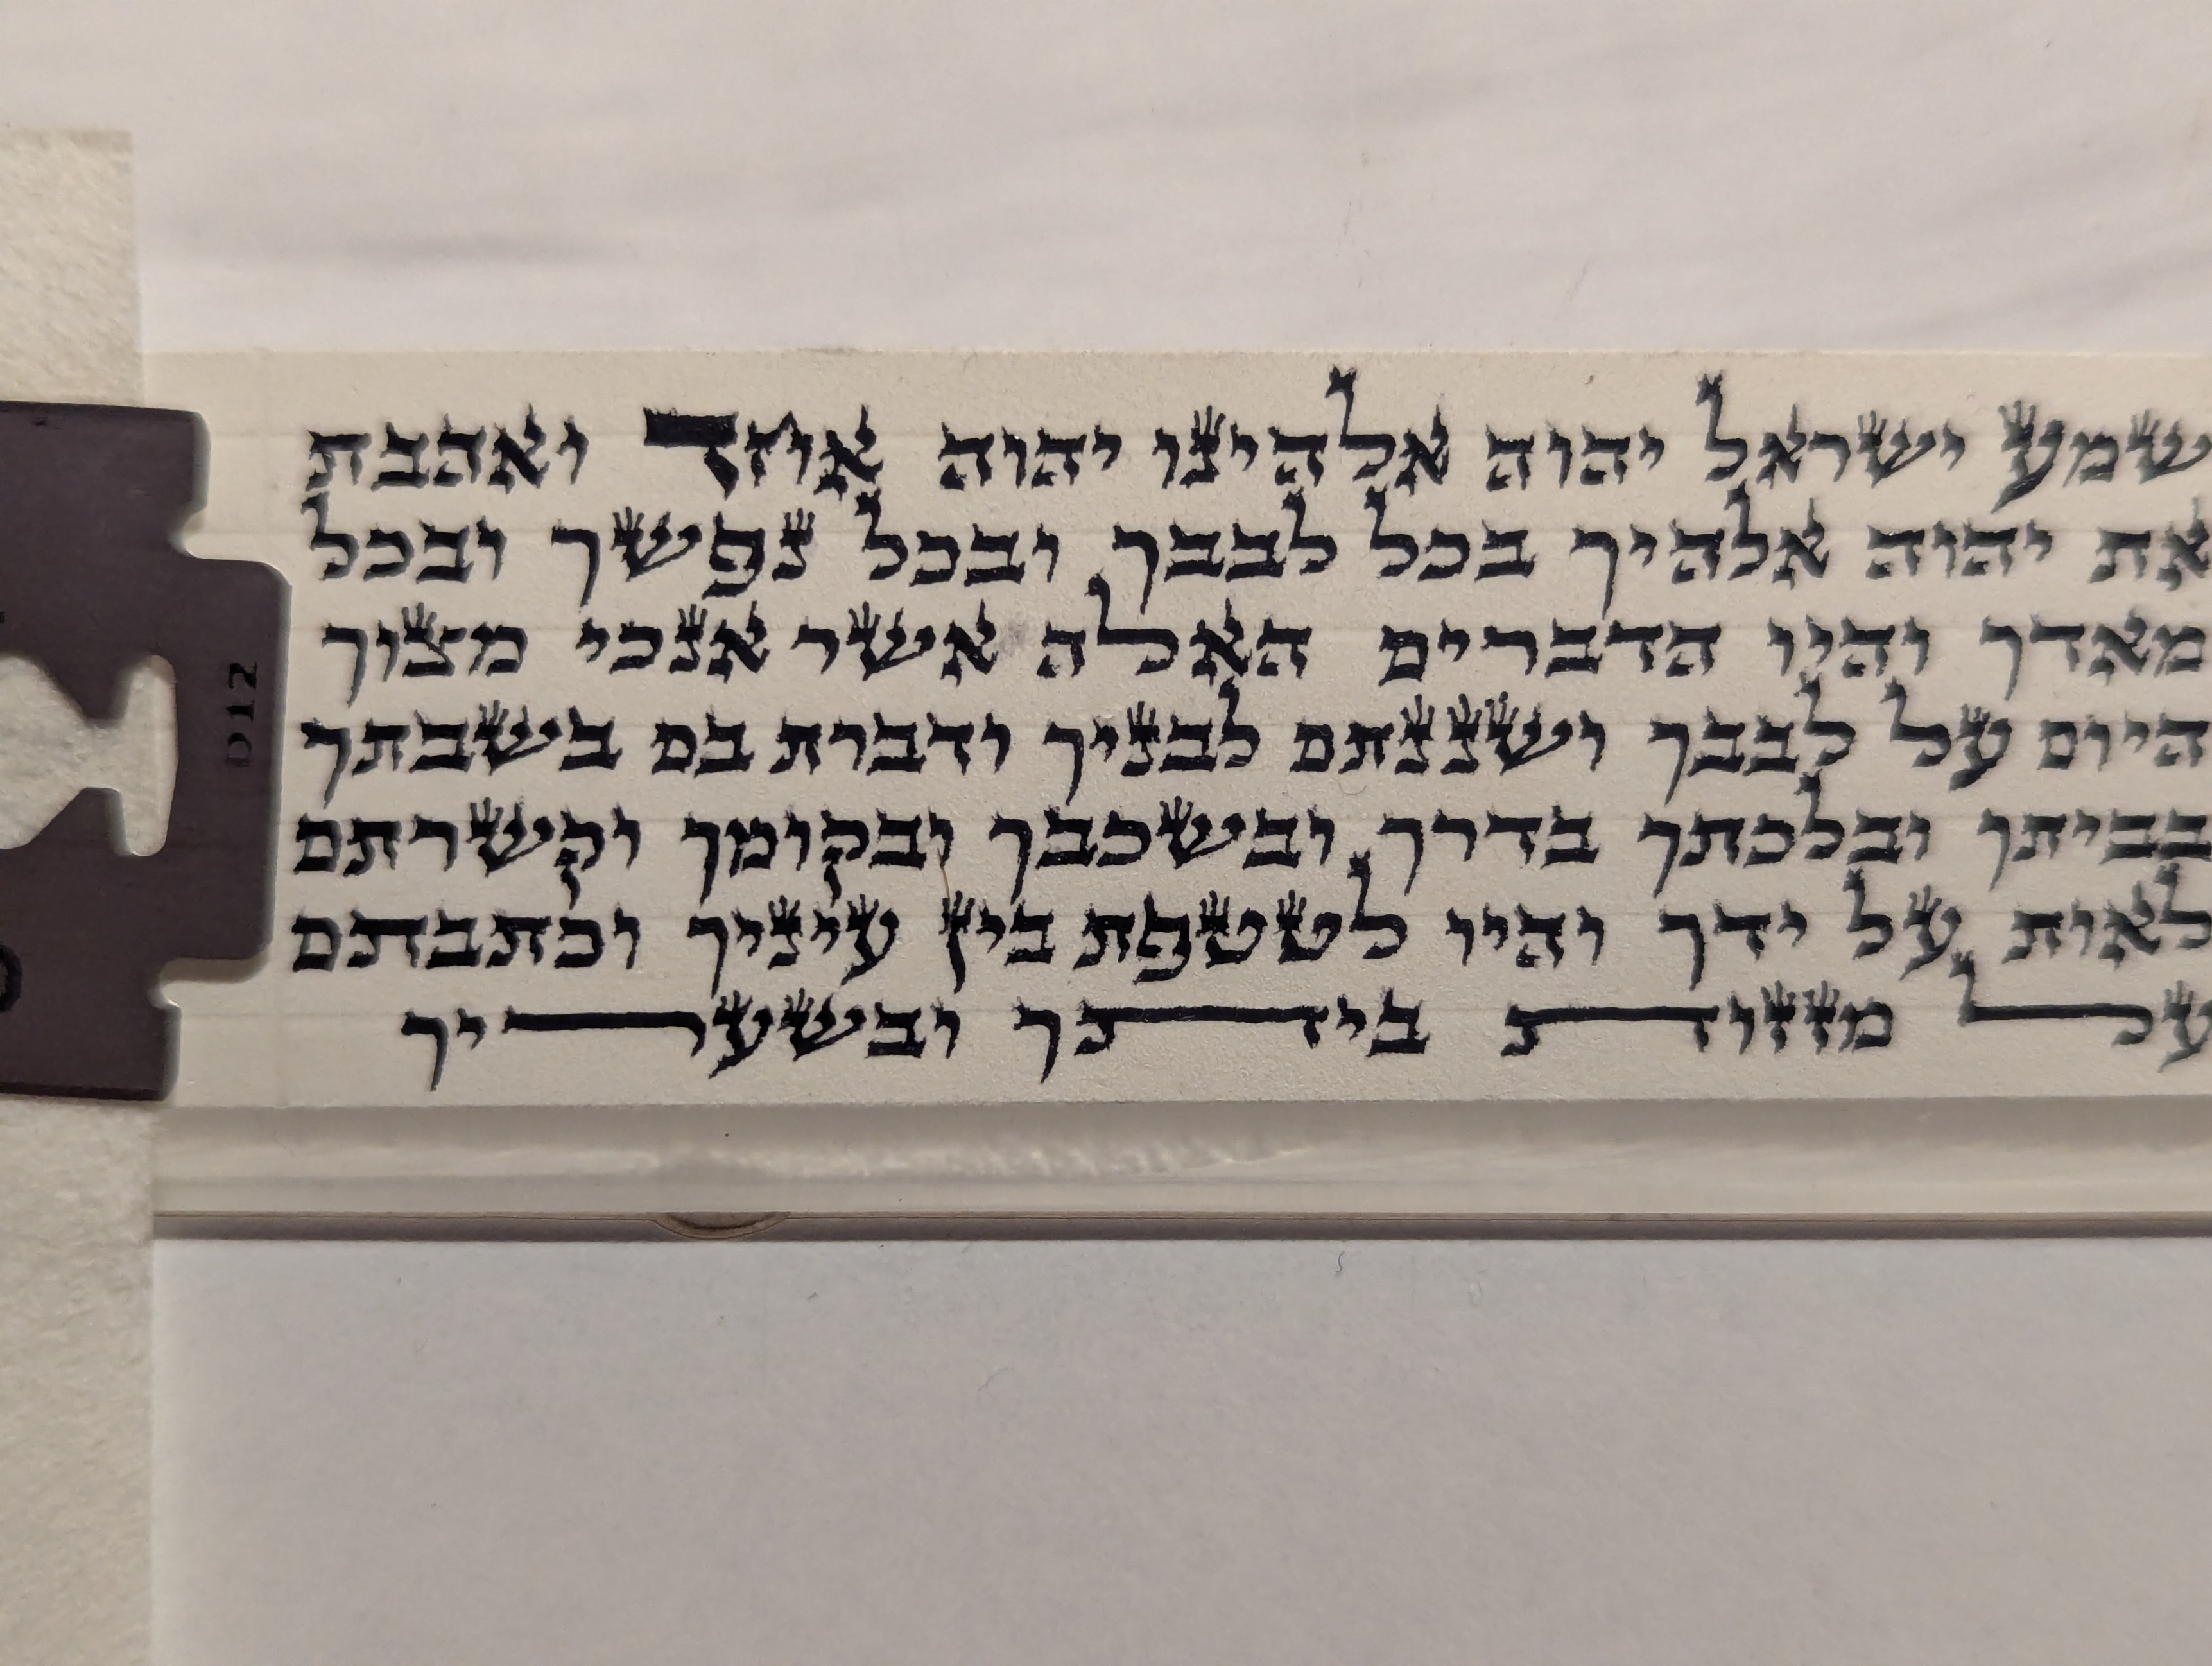 שמע ישראל יהוה אלהינו יהוה אחד ואהבת
את יהוה אלהיך בכל לבבך ובכל נפשך ובכל
מאדך והיו הדברים האלה אשר אנכי מצוך
היום על לבבך ושננתם לבניך ודברת בם בשבתך
בביתך ובלכתך בדרך ובשכבך ובקומך וקשרתם
לאות על ידך והיו לטטפת בין עיניך וכתבתם
על מזוזת ביתך ובשעריך
D12